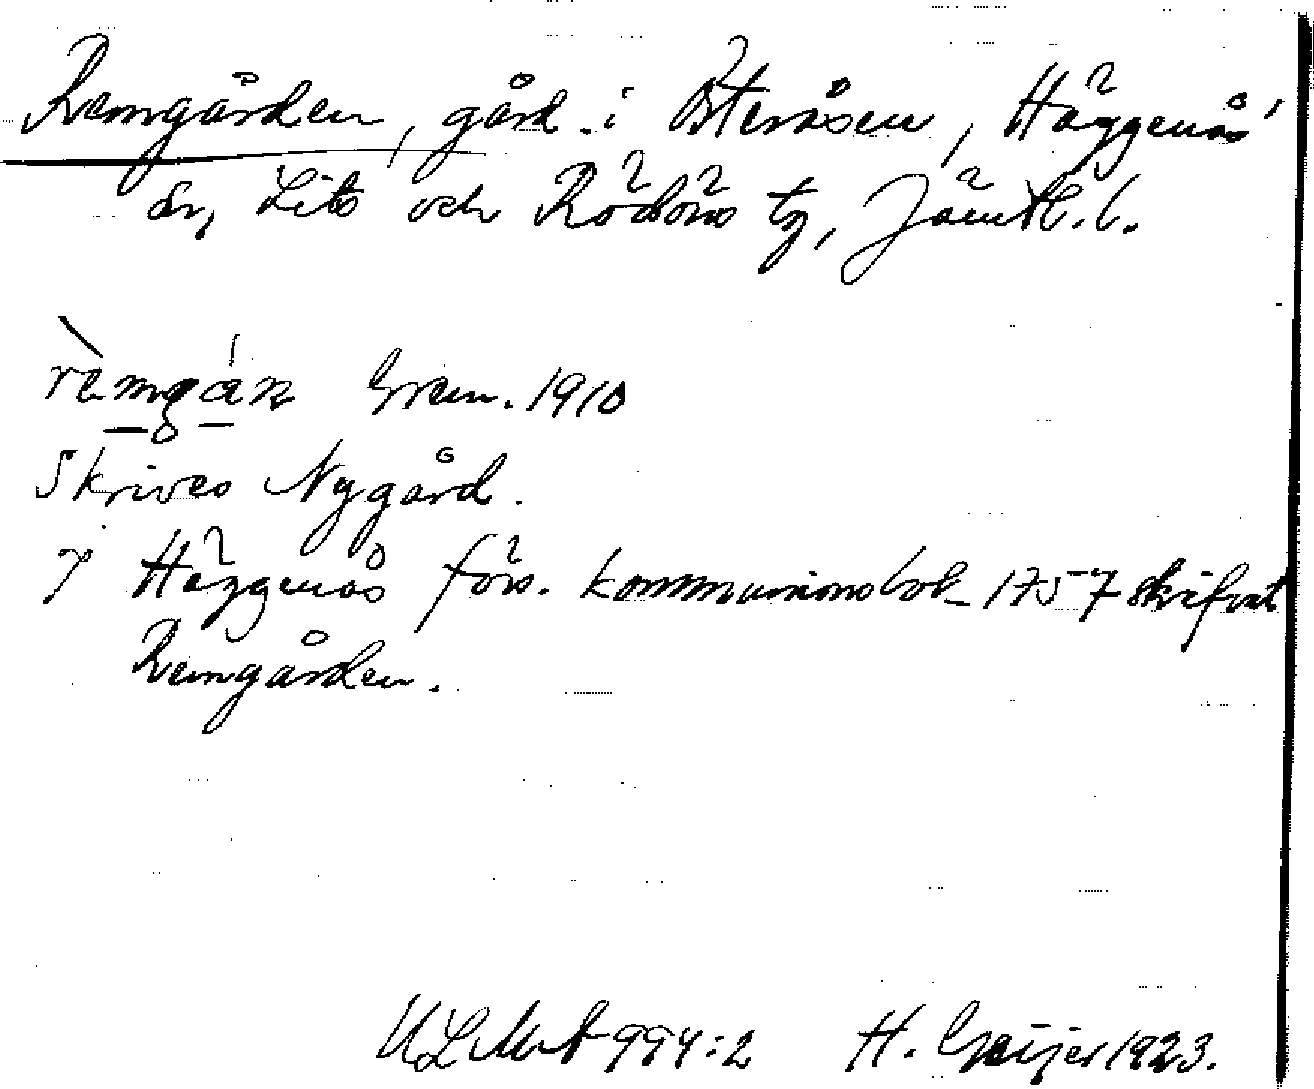 Remgården, gård i Österåsen, Häggenås'
sn, Lits och Rödöns tg, Jämtl. l.
rèmgán Gren. 1910
Skrives Nygård.
I Häggenås förs. kommunionsbok 1757 skrifvet
Remgården.
ULMA 994:2 H. Geijer 1923.